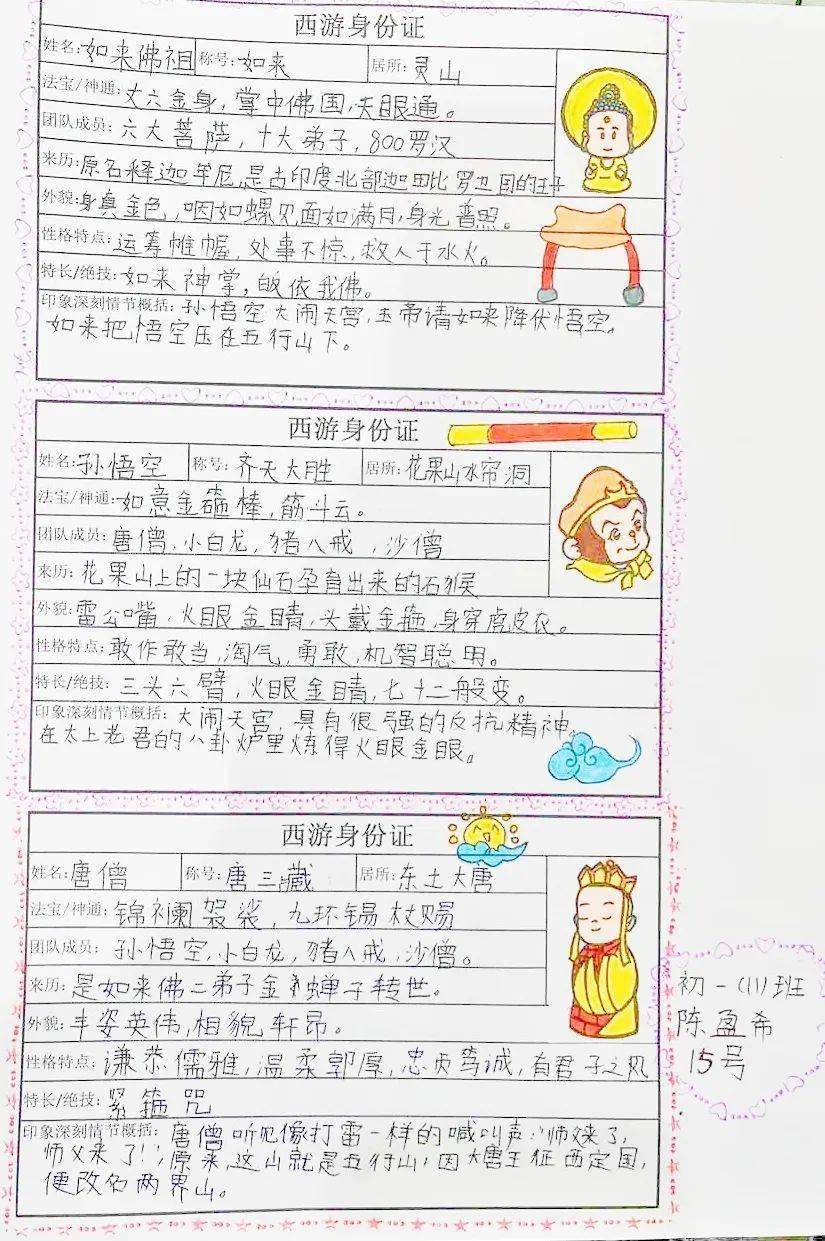 西游身份证
姓名:如来佛祖 称号:如来 居所:灵山
法宝/神通:丈六金身,掌中佛国,天眼通。
团队成员:六大菩萨,十大弟子,800罗汉
来历:原名释迦牟尼,是古印度北部迦毗罗卫国的王子
外貌:身真金色,咽如螺贝面如满月,身光普照。
性格特点:运筹帷幄,处事不惊,救人于水火。
特长/绝技:如来神掌,皈依我佛。
印象深刻情节概括:孙悟空大闹天宫,玉帝请如来降伏悟空。
如来把悟空压在五行山下。
西游身份证
姓名:孙悟空 称号:齐天大胜 居所:花果山水帘洞
法宝/神通:如意金箍棒,筋斗云。
团队成员:唐僧,小白龙,猪八戒,沙僧
来历:花果山上的一块仙石孕育出来的石猴
外貌:雷公嘴,火眼金睛,头戴金箍,身穿虎皮衣。
性格特点:敢作敢当,淘气,勇敢,机智聪明。
特长/绝技:三头六臂,火眼金睛,七十二般变。
印象深刻情节概括:大闹天宫,具有很强的反抗精神。
在太上老君的八卦炉里炼得火眼金眼。
西游身份证
姓名:唐僧 称号:唐三藏 居所:东土大唐
法宝/神通:锦襕袈裟,九环锡杖赐
团队成员:孙悟空,小白龙,猪八戒,沙僧。
来历:是如来佛二弟子金蝉子转世。
外貌:丰姿英伟,相貌轩昂。
性格特点:谦恭儒雅,温柔郭厚,忠贞笃诚,有君子之风
特长/绝技:紧箍咒
印象深刻情节概括:唐僧听见像打雷一样的喊叫声:“师父来了,
师父来了!”,原来,这山就是五行山,因大唐王征西定国,
便改名两界山。
初一(11)班
陈盈希
15号